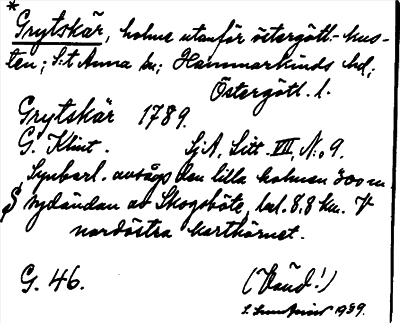 *
Grytskär, holme utanför östergötl. kus-
ten; S:t Anna sn; Hammarkinds hd;
Östergötl. l.
Grytskär 1789.
G. Klint. SjA, Litt. VII, N:o 9.
Synbarl. avsågs den lilla holmen 300 m
S sydändan av Skogsböte, bel. 8,8 km. V
nordöstra karthörnet.
G. 46. (Vänd!)
1939.